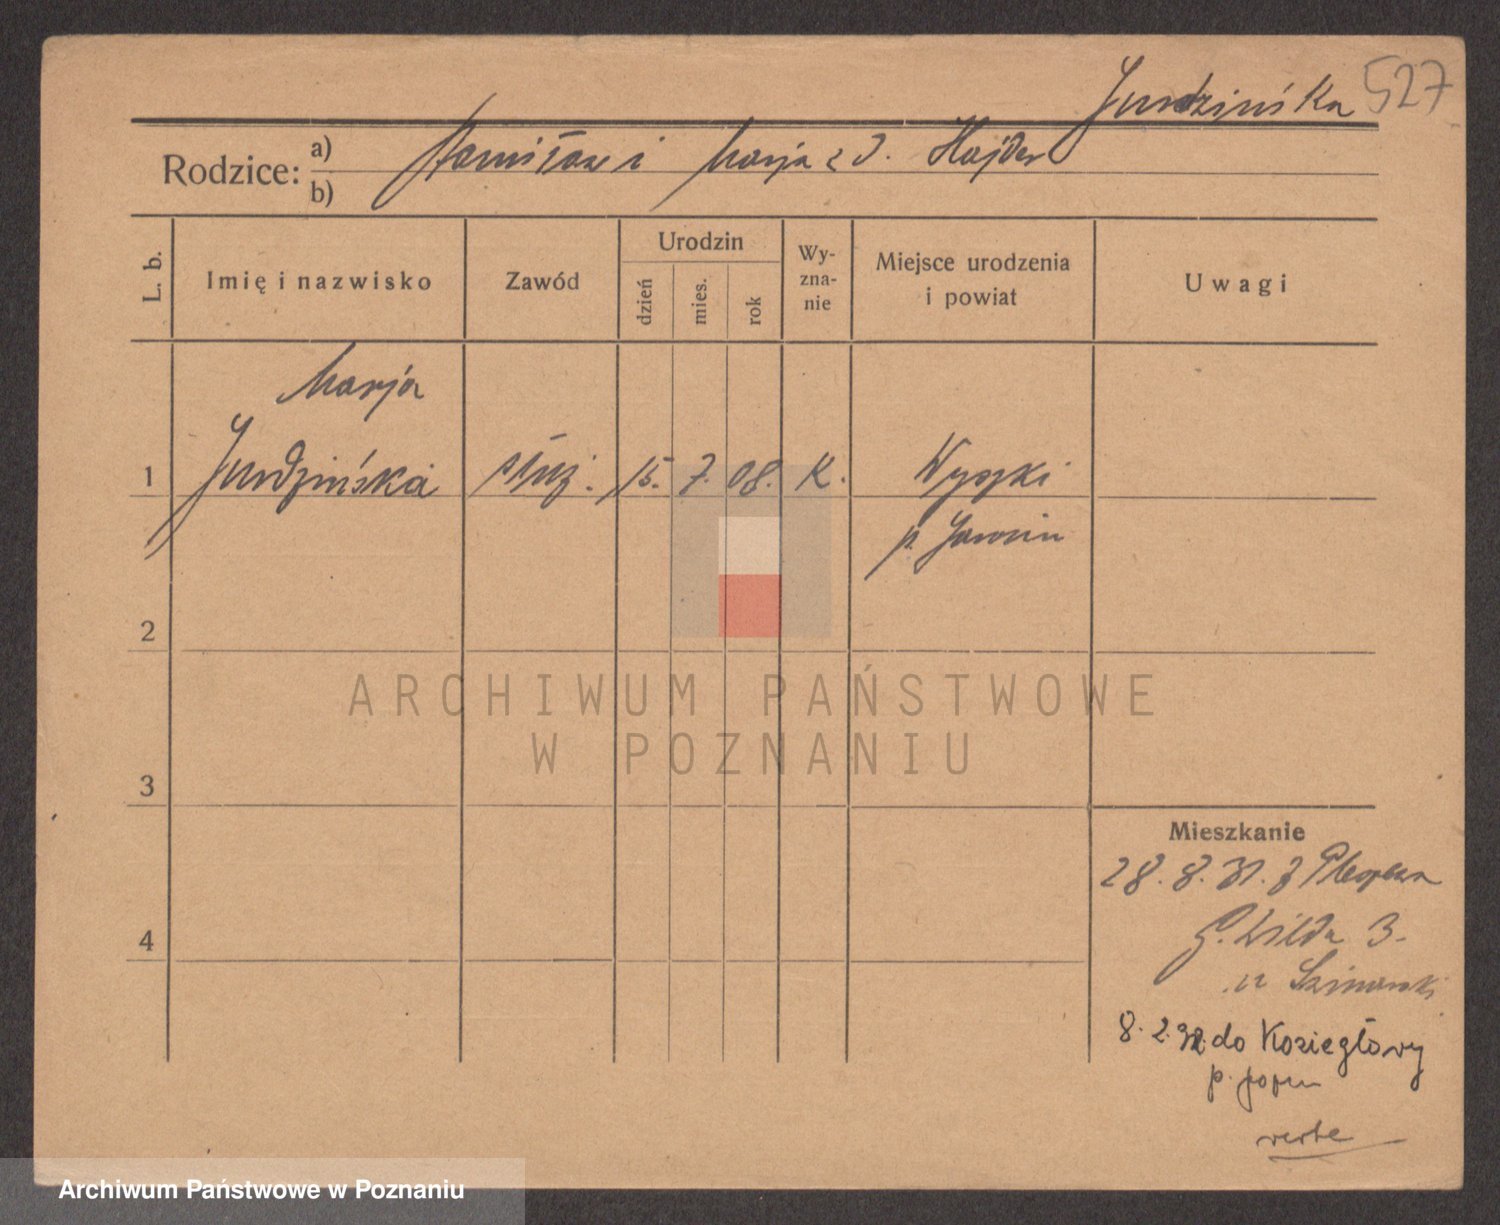 Jurdzińska 527
Rodzice: a) b) Stanisław i Marja z d. Hajder
L. b.
Imię i nazwisko
Zawód
Urodzin
dzień
mies.
rok
Wy-
zna-
nie
Miejsce urodzenia
i powiat
Uwagi
Marja
1 Jurdzińska służ. 15. 7. 08. K. Wyszki
p. Jarocin
2
3
4
Mieszkanie
28. 8. 31. z
G. Wilda 3.
u
8. 2. 32 do Koziegłowy
p.
verte
ARCHIWUM PAŃSTWOWE
W POZNANIU
Archiwum Państwowe w Poznaniu